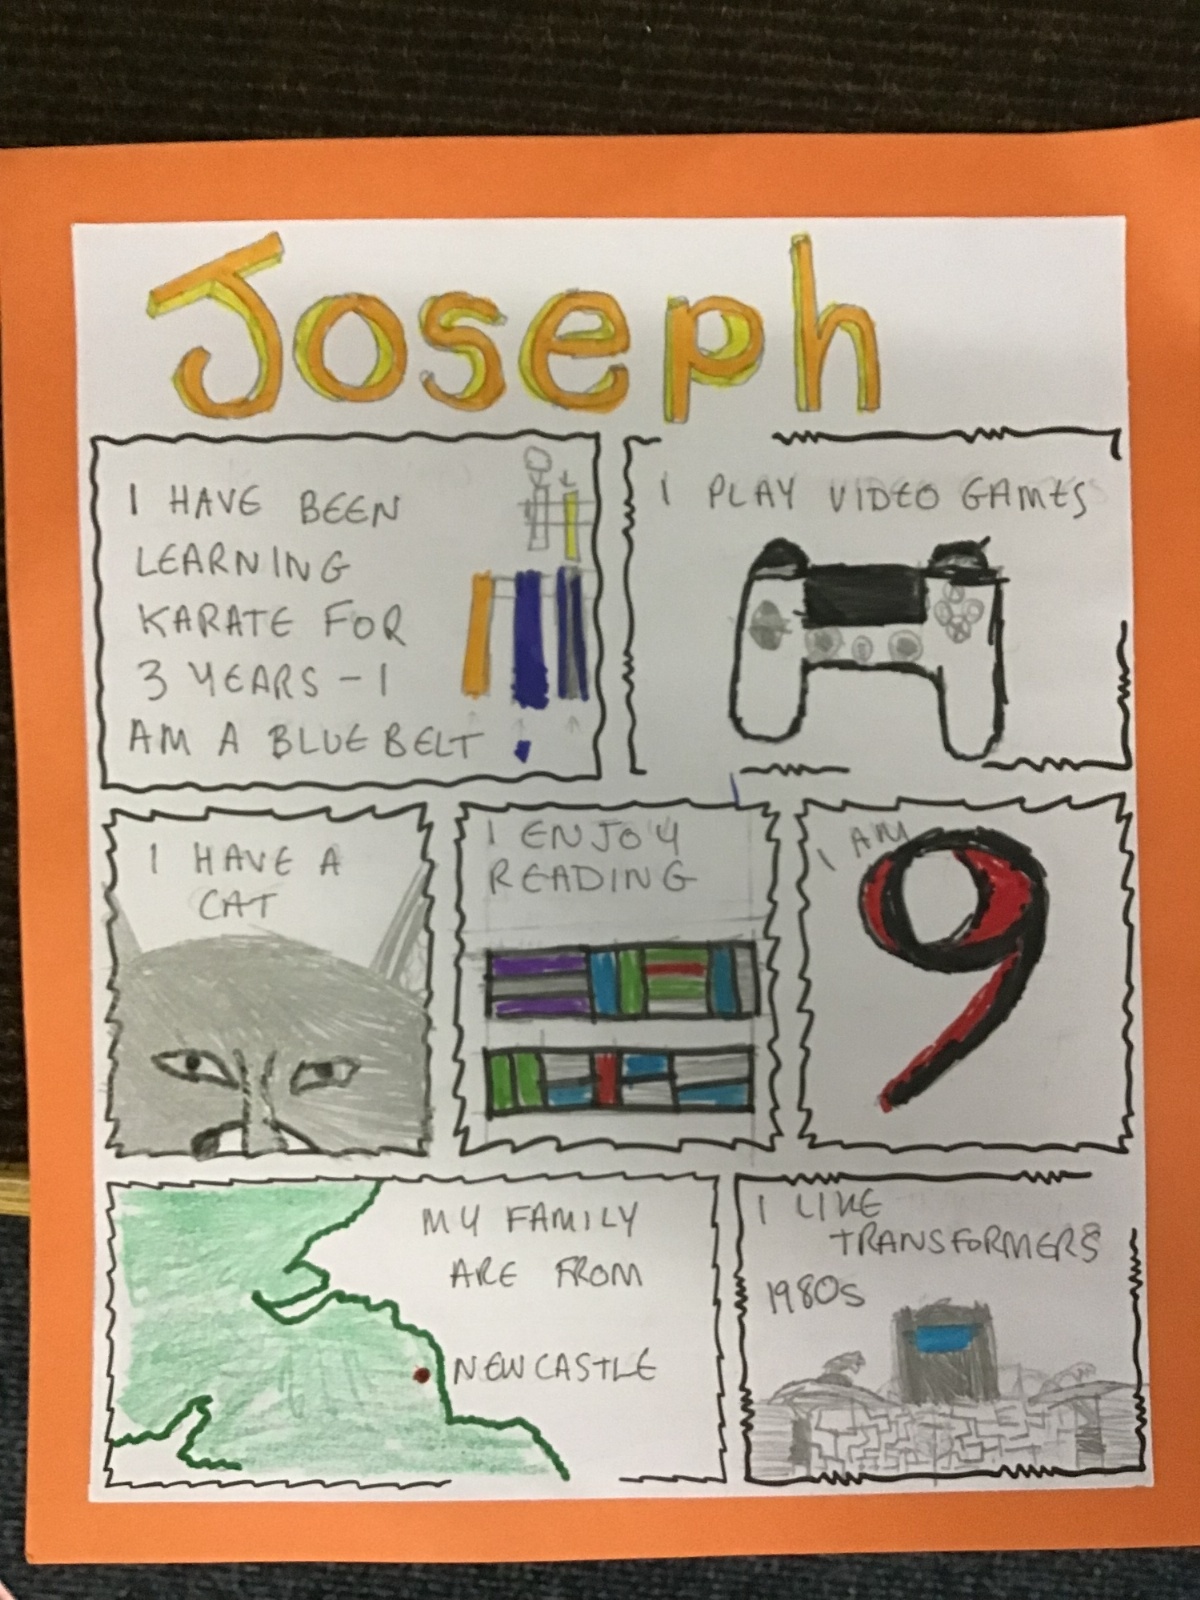 Joseph
I HAVE BEEN
LEARNING
KARATE FOR
3 YEARS - I
AM A BLUE BELT
I PLAY VIDEO GAMES
I HAVE A
CAT
I ENJOY
READING
I AM
9
MY FAMILY
ARE FROM
NEWCASTLE
I LIKE
TRANSFORMERS
1980s